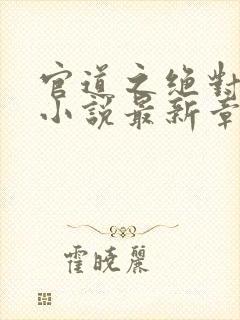 官道之绝對
小説最新章
霍曉麗